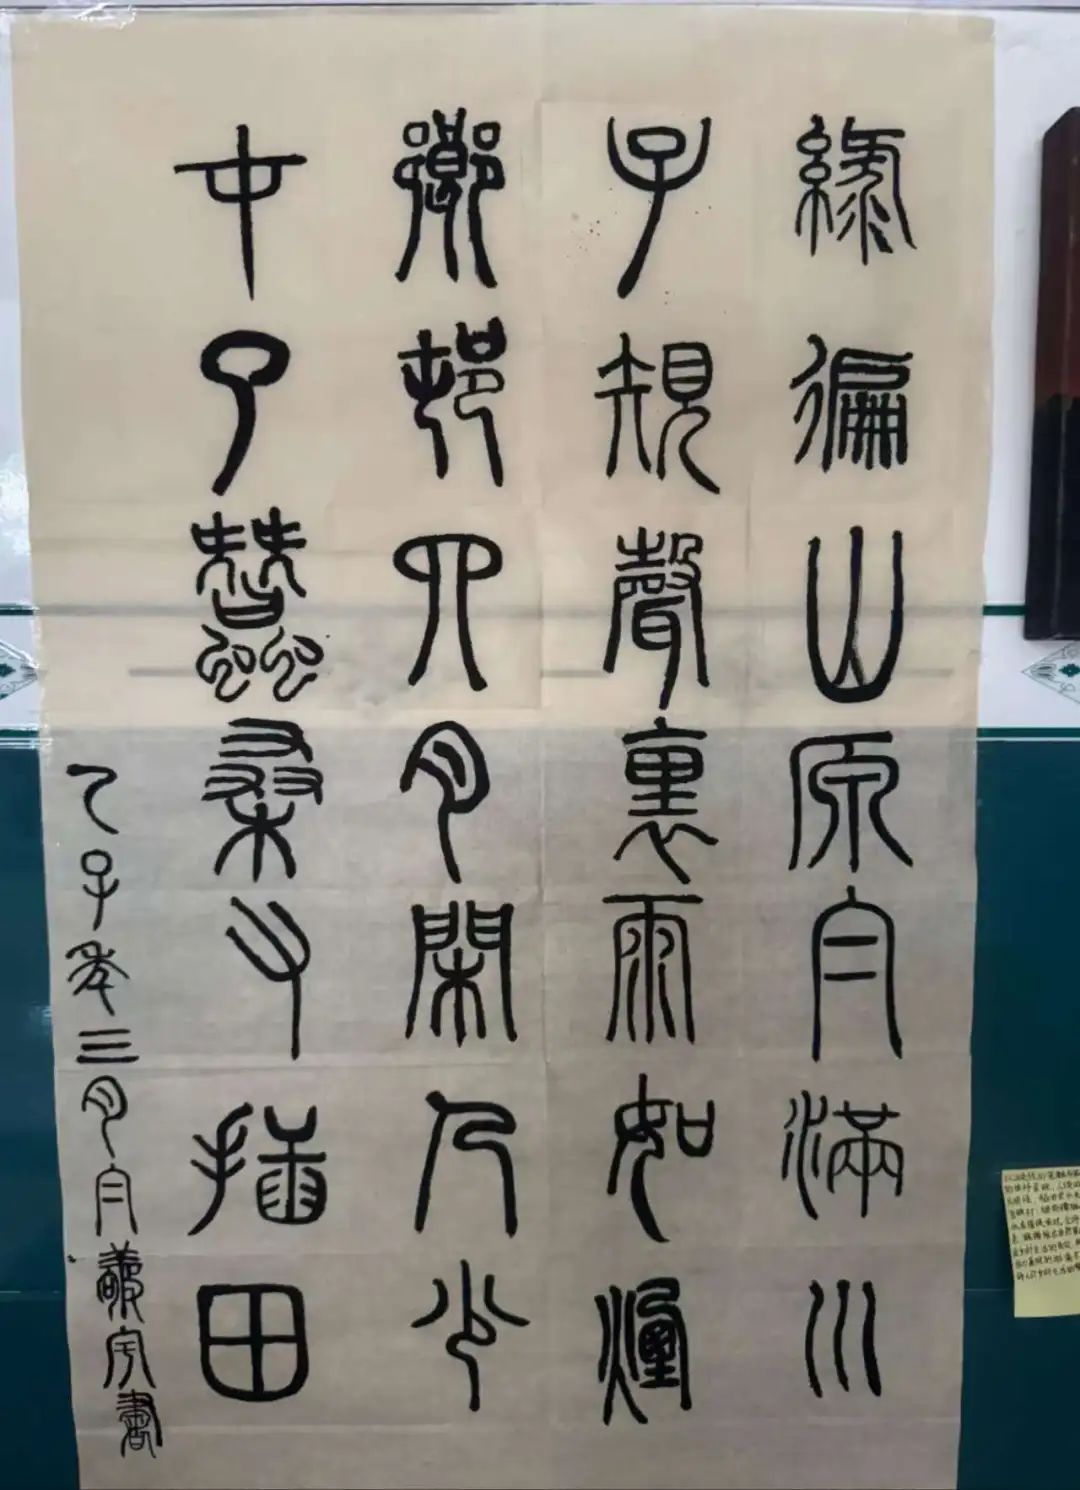 綠徧山原白滿川
子規聲裏雨如煙
鄉邨四月閑人少
才了蠶桑又插田
乙子年三月白宇書